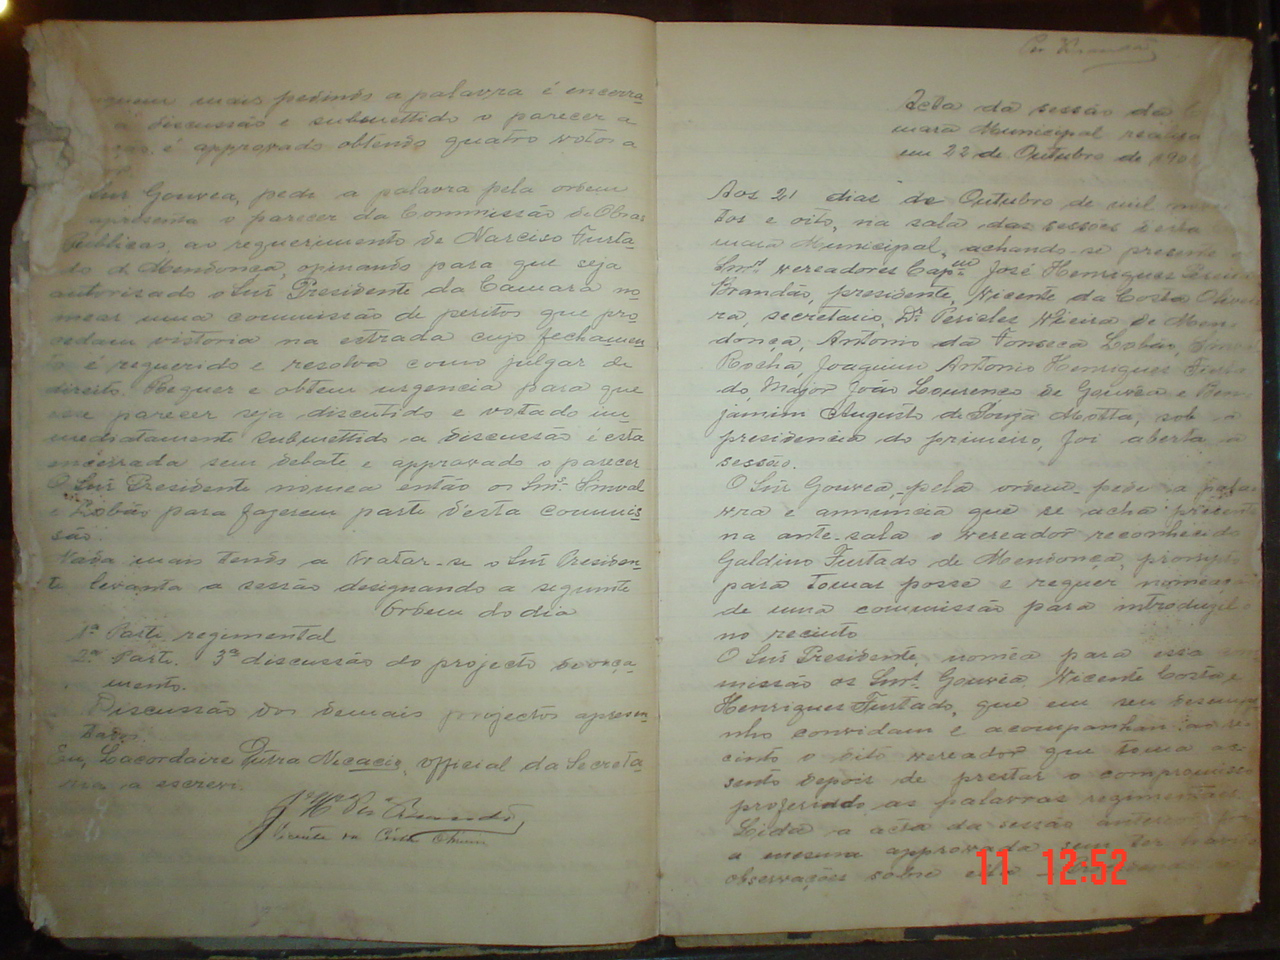 mais pedindo a palavra é encerra-
a discussão e submettido o parecer a
é approvado obtendo quatro votos a
Snr Gouvea, pede a palavra pela ordem
apresenta o parecer da Commissão de Obras
Publicas, ao requerimento de Narciso Furta-
do de Mendonça, opinando para que seja
autorisado o Snr Presidente da Camara no-
mear uma commissão de peritos que pro-
cedam vistoria na estrada cujo fechamen-
to é requerido e resolva como julgar de
direito. Requer e obtem urgencia para que
seu parecer seja discutido e votado im-
mediatamente submettido a discussão é esta
encerrada sem debate e approvado o parecer
O Snr Presidente nomea então os Snrs. Sinval
e Lobão para fazerem parte d'esta commis-
são.
Nada mais tendo a tratar-se o Snr Presiden-
te levanta a sessão designando a seguinte
Ordem do dia
1ª Parte regimental
2ª Parte. 3ª discussão do projecto de orça-
mento.
Discussão dos demais projectos apresen-
tados.
Eu, Lacordaire Dutra Nicacio, official da Secreta-
ria a escrevi.
Vicente da Costa Oliveira
Acta da sessão da
mara Municipal realisa
em 22 de Outubro de 190
Aos 21 dias de Outubro de mil nove
tos e oito, na sala das sessões d'esta
mara Municipal, achando-se presente
Snrs. vereadores Capm. José Henriques Pereira
Brandão, presidente, Vicente da Costa Olivei-
ra, secretario, Dr. Pericles Vieira de Men-
donça, Antonio da Fonseca Lobão, Sinval
Rocha, Joaquim Antonio Henriques Furta-
do, Major João Lourenço de Gouvea e Ben-
jamim Augusto de Souza Motta, sob a
presidencia do primeiro, foi aberta a
sessão.
O Snr Gouvea, pela ordem, pede a pala-
vra e annuncia que se acha presente
na ante-sala o vereador reconhecido
Galdino Furtado de Mendonça, prompto
para tomar posse e requer nomeaçã
de uma commissão para introduzil-o
no recinto
O Snr Presidente, nomêa para essa
missão os Snrs. Gouvêa, Vicente Costa e
Henriques Furtado, que em seu desempe
nho convidam e acompanham ao re-
cinto o dito vereador que toma as-
sento depois de prestar o compromisso
proferindo as palavras regimentaes.
Lida a acta da sessão anterior foi
a mesma approvada sem ter havido
observações sobre ella
11 12:52